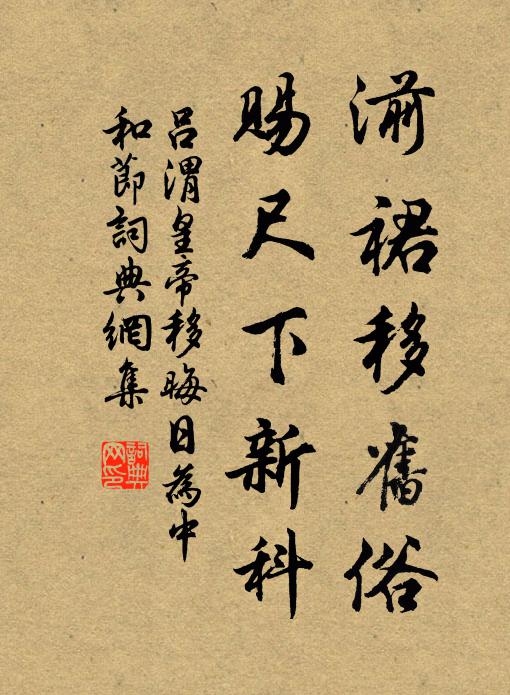 湔裙移舊俗
賜尺下新科
呂渭皇帝移晦日為中
和節詞典網集
詞典
网印